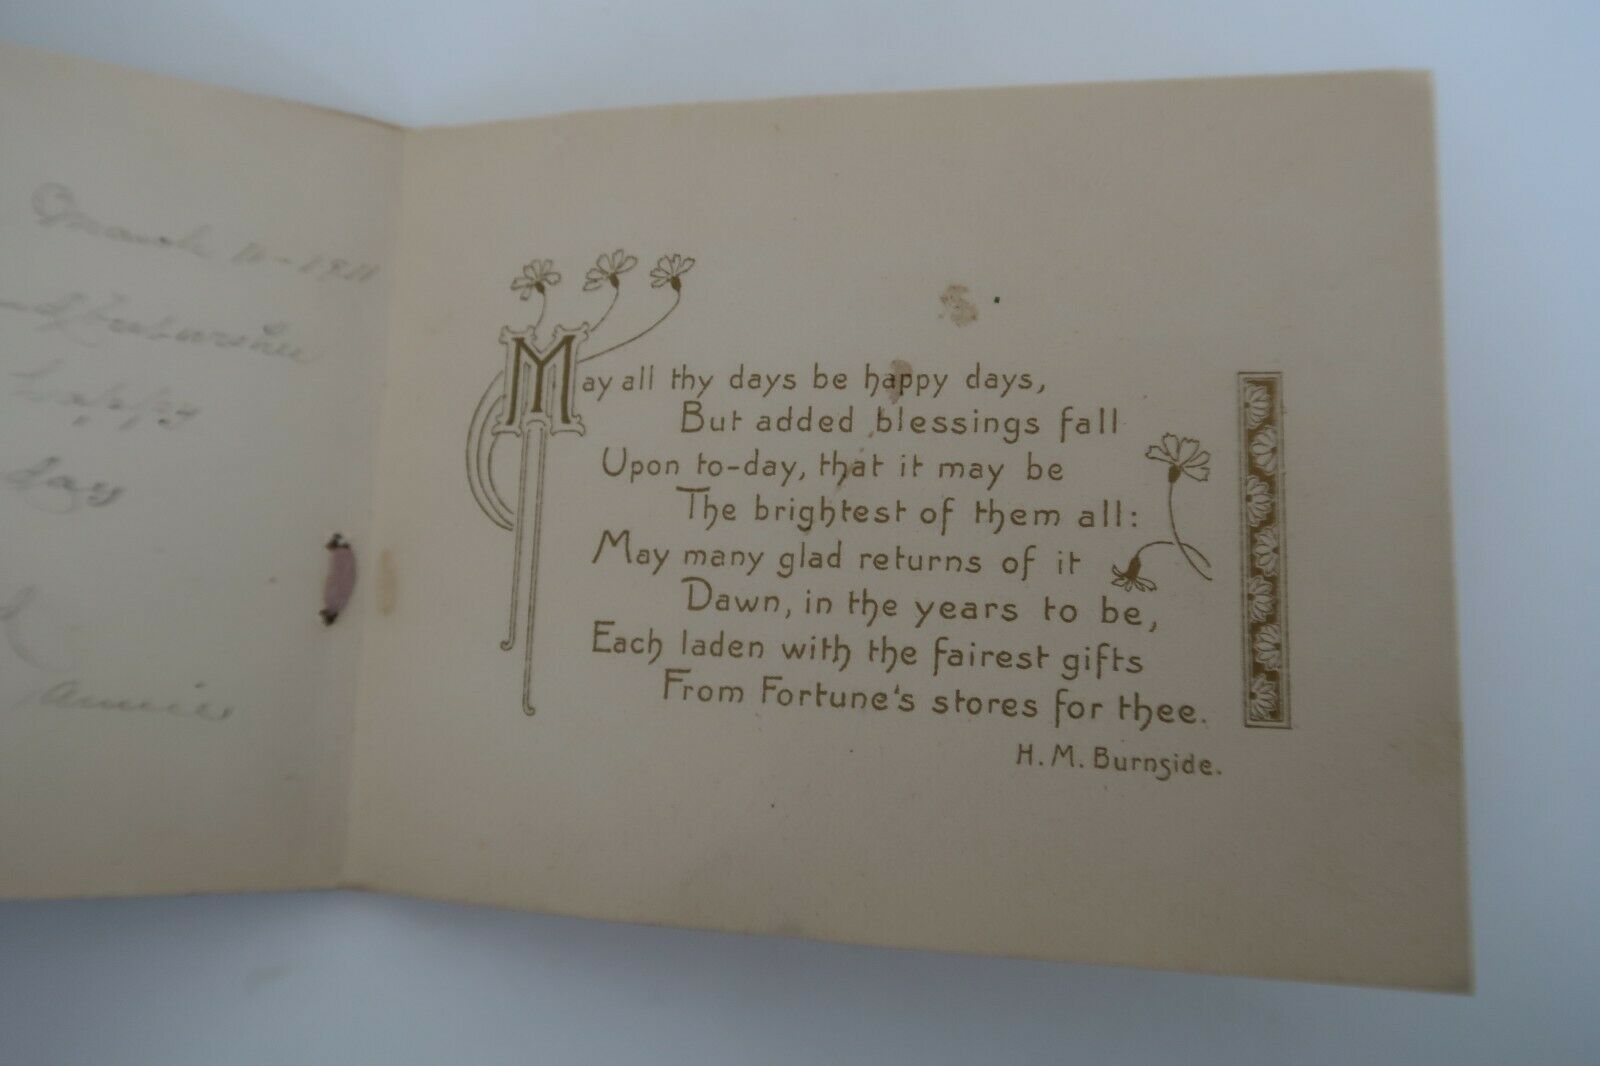 March 16-1911
happy
day
Annie
May all thy days be happy days,
But added blessings fall
Upon to-day, that it may be
The brightest of them all:
May many glad returns of it
Dawn, in the years to be,
Each laden with the fairest gifts
From Fortune's stores for thee.
H. M. Burnside.